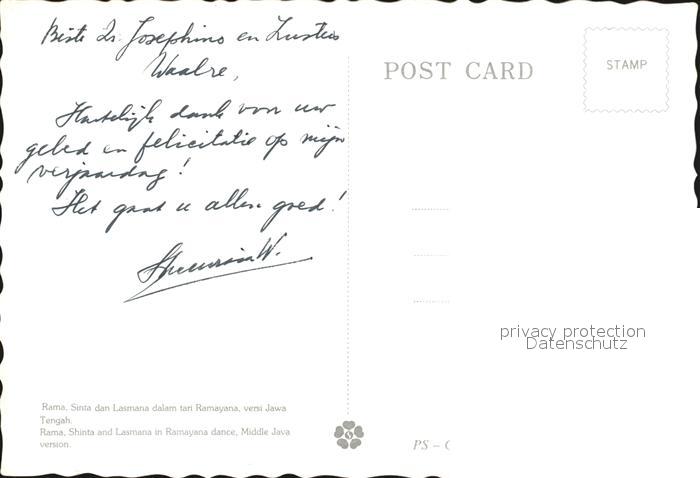 Beste Zr. Josephino en Zusters
Waalre,
Hartelijk dank voor uw
gebed en felicitatie op mijn
verjaardag!
Het gaat u allen goed!
W.
POST CARD
STAMP
privacy protection
Datenschutz
Rama, Sinta dan Lasmana dalam tari Ramayana, versi Jawa
Tengah.
Rama, Shinta and Lasmana in Ramayana dance, Middle Java
version.
PS –